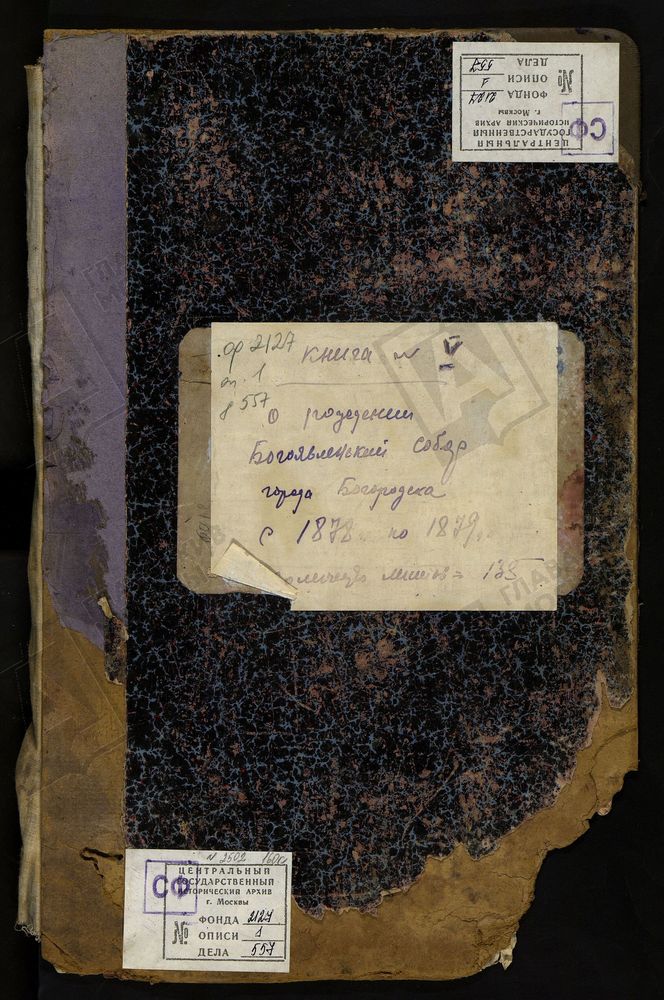 ЦЕНТРАЛЬНЫЙ
ГОСУДАРСТВЕННЫЙ
ИСТОРИЧЕСКИЙ АРХИВ
г. Москвы
СФ
№
ФОНДА 2127
ОПИСИ 1
ДЕЛА 557
ф 2127
оп. 1
д 557
Книга № V
О рождении
Богоявленский собор
города Богородска
с 1878 по 1879.
листов = 135
№ 2502
ЦЕНТРАЛЬНЫЙ
ГОСУДАРСТВЕННЫЙ
ИСТОРИЧЕСКИЙ АРХИВ
г. Москвы
СФ
№
ФОНДА 2127
ОПИСИ 1
ДЕЛА 557